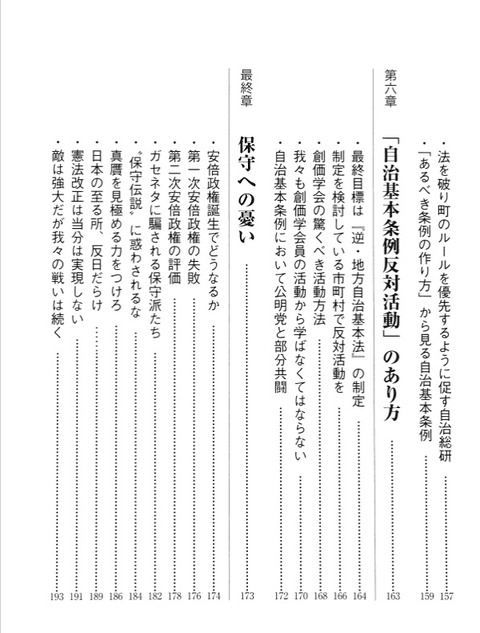 ・法を破り町のルールを優先するように促す自治総研 157
・「あるべき条例の作り方」から見る自治基本条例 159
第六章 「自治基本条例反対活動」のあり方 163
・最終目標は『逆・地方自治基本法』の制定 164
・制定を検討している市町村で反対活動を 166
・創価学会の驚くべき活動方法 168
・我々も創価学会員の活動から学ばなくてはならない 170
・自治基本条例において公明党と部分共闘 172
最終章 保守への憂い 173
・安倍政権誕生でどうなるか 174
・第一次安倍政権の失敗 176
・第二次安倍政権の評価 178
・ガセネタに騙される保守派たち 182
・〝保守伝説〟に惑わされるな 184
・真贋を見極める力をつけろ 186
・日本の至る所、反日だらけ 189
・憲法改正は当分は実現しない 191
・敵は強大だが我々の戦いは続く 193